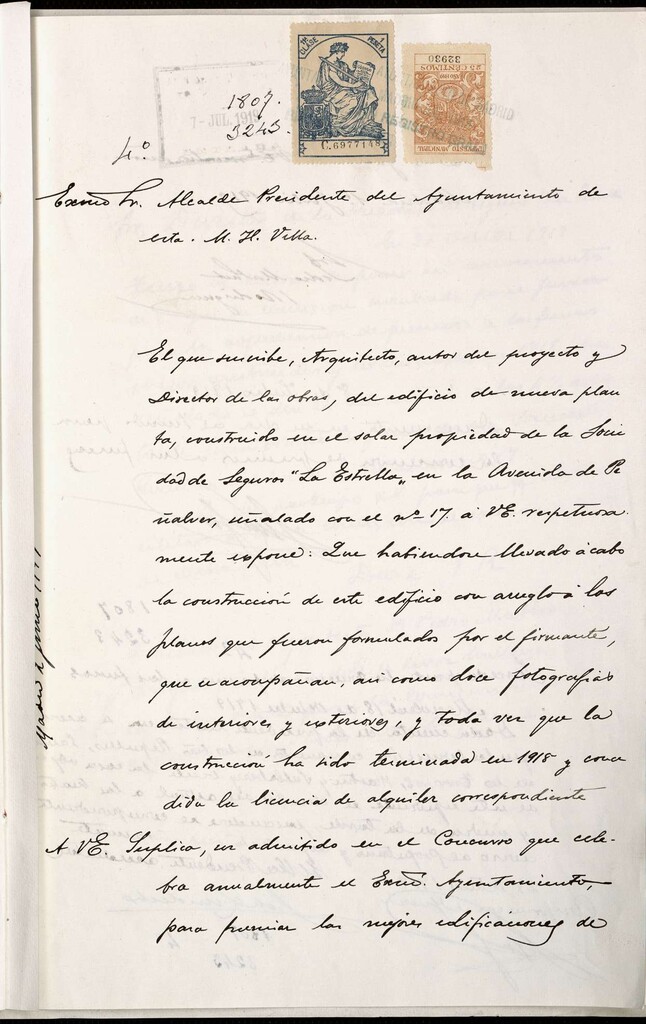 7ª CLASE 1 PESETA
C.6977148
32930
25 CENTIMOS
1807.
7- JUL. 191
3243.
4º
Excmo Sr. Alcalde Presidente del Ayuntamiento de
esta. M. H. Villa.
El que suscribe, Arquitecto, autor del proyecto y
Director de las obras, del edificio de nueva plan
ta, construido en el solar propiedad de la Socie
dad de Seguros "La Estrella„ en la Avenida de Pe
ñalver, señalado con el nº 17. á VE. respetuosa.
mente expone: Que habiendose llevado à cabo
la construcción de este edificio con arreglo à los
planos que fueron formulados por el firmante,
que se acompañan, asi como doce fotografias
de interiores y exteriores, y toda vez que la
construcción ha sido terminada en 1918 y conce
dida la licencia de alquiler correspondiente
A VE. Suplica, ser admitido en el Concurso que cele-
bra anualmente el Excmo. Ayuntamiento,
para premiar las mejores edificaciones de